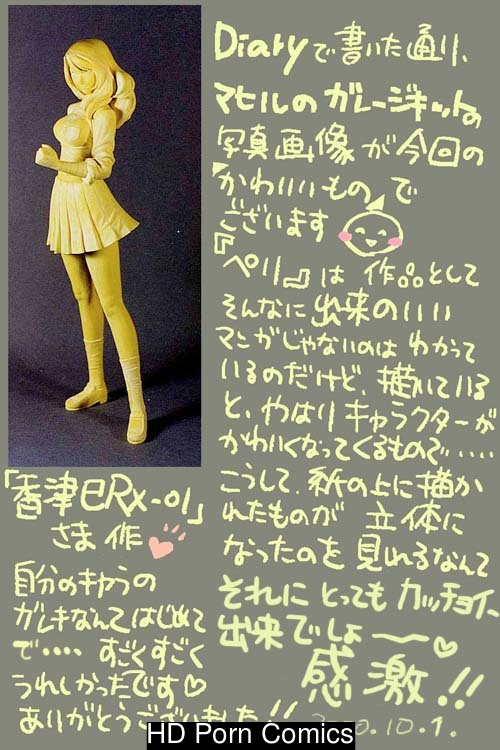 Diaryで書いた通り、
マヒルのガレージキットの
写真画像が今回の
"かわいいもの"で
ございます
『ペリ』は作品として
そんなに出来のいい
マンガじゃないのはわかって
いるのだけど、描いている
と、やはりキャラクターが
かわいくなってくるもので・・・・・
こうして、紙の上に描か
れたものが立体に
なったのを見れるなんて
それにとってもカッチョイー
出来でしょ〜〜♡
感激!!
「香津巳RX-01」
さま作
自分のキャラの
ガレキなんてはじめて
で・・・・すごくすごく
うれしかったです♡
ありがとうございました!!
.10.1.
HD Porn Comics